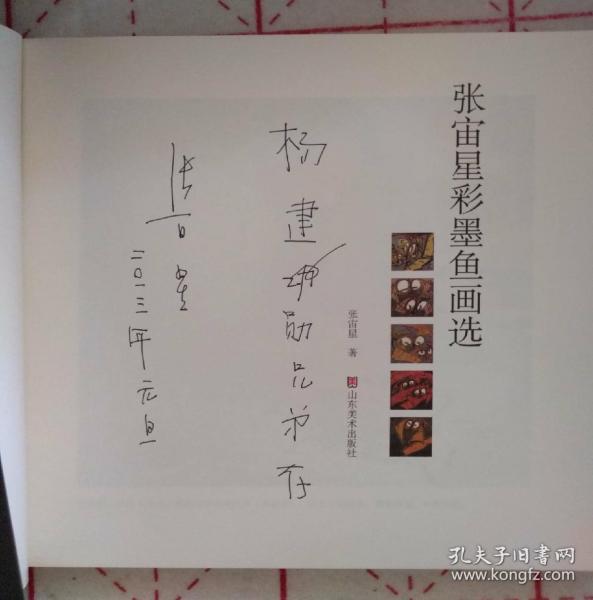 张宙星彩墨鱼画选
张宙星 著
山东美术出版社
杨建
兄弟存
张宙星
二〇一三年元旦
孔夫子旧书网
www.kongfz.com